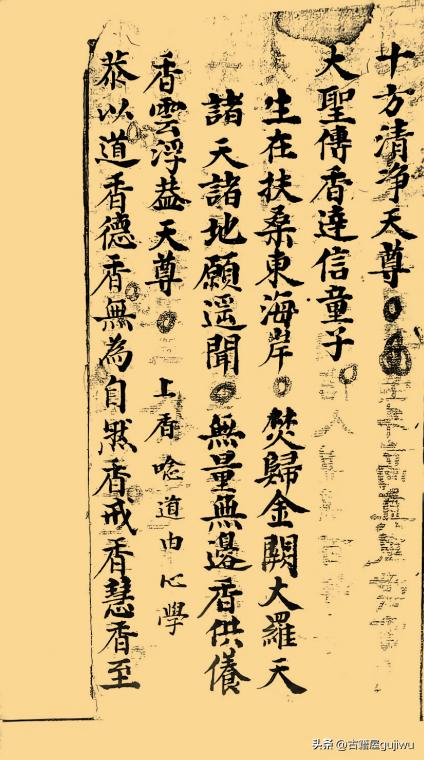 十方清净天尊
大聖傳香達信童子
生在扶桑東海岸 焚歸金闕大羅天
諸天諸地願遥聞 無量無邊香供養
香雲浮葢天尊 上香唸道由心學
恭以道香德香無為自然香戒香慧香至
头条 @古籍屋gujiwu